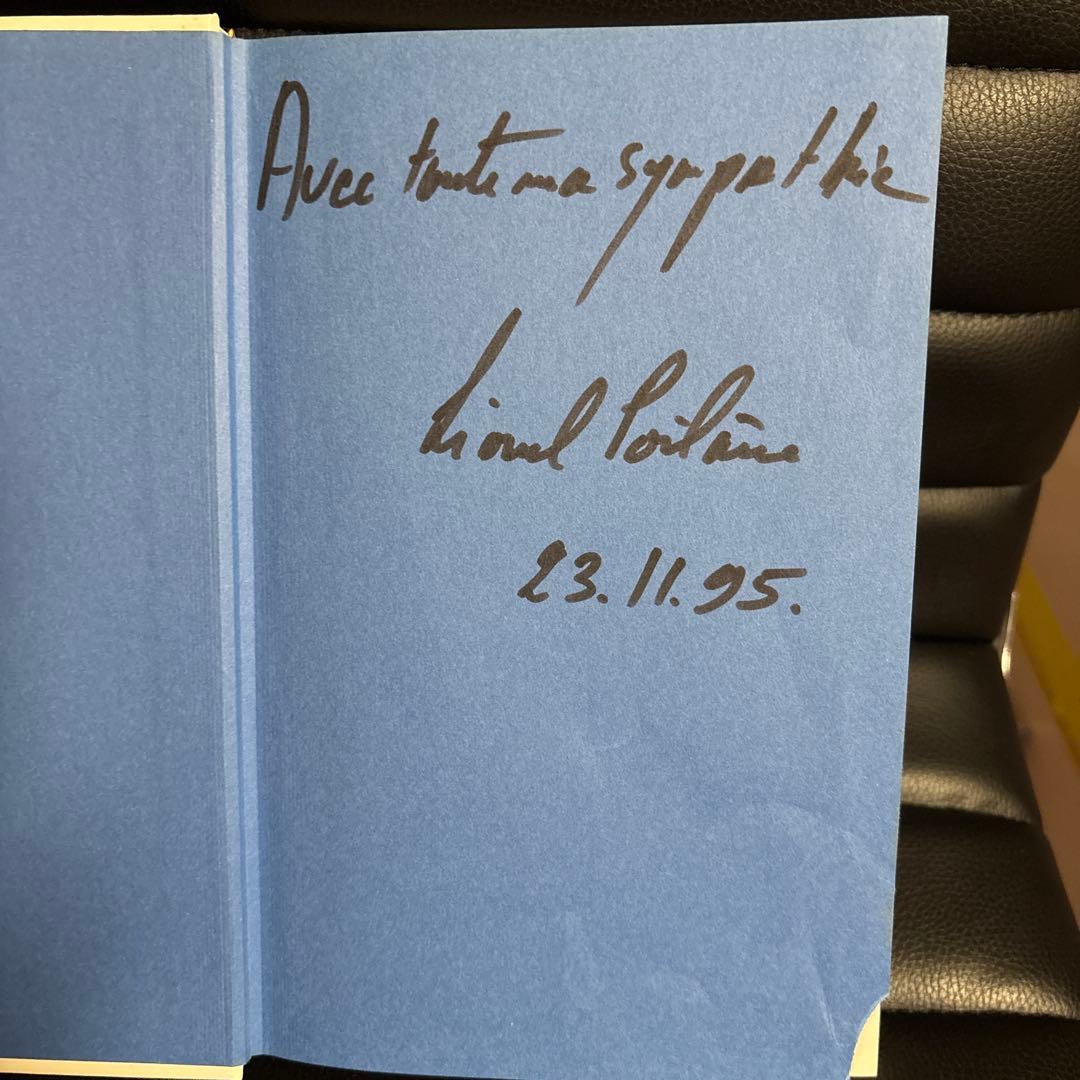 Avec toute ma sympathie
Lionel Poilâne
23.11.95.